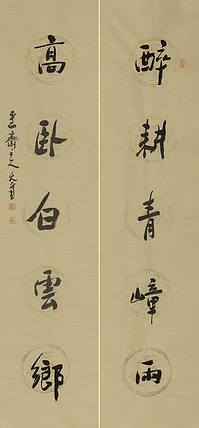 醉耕青嶂雨
高臥白雲鄉